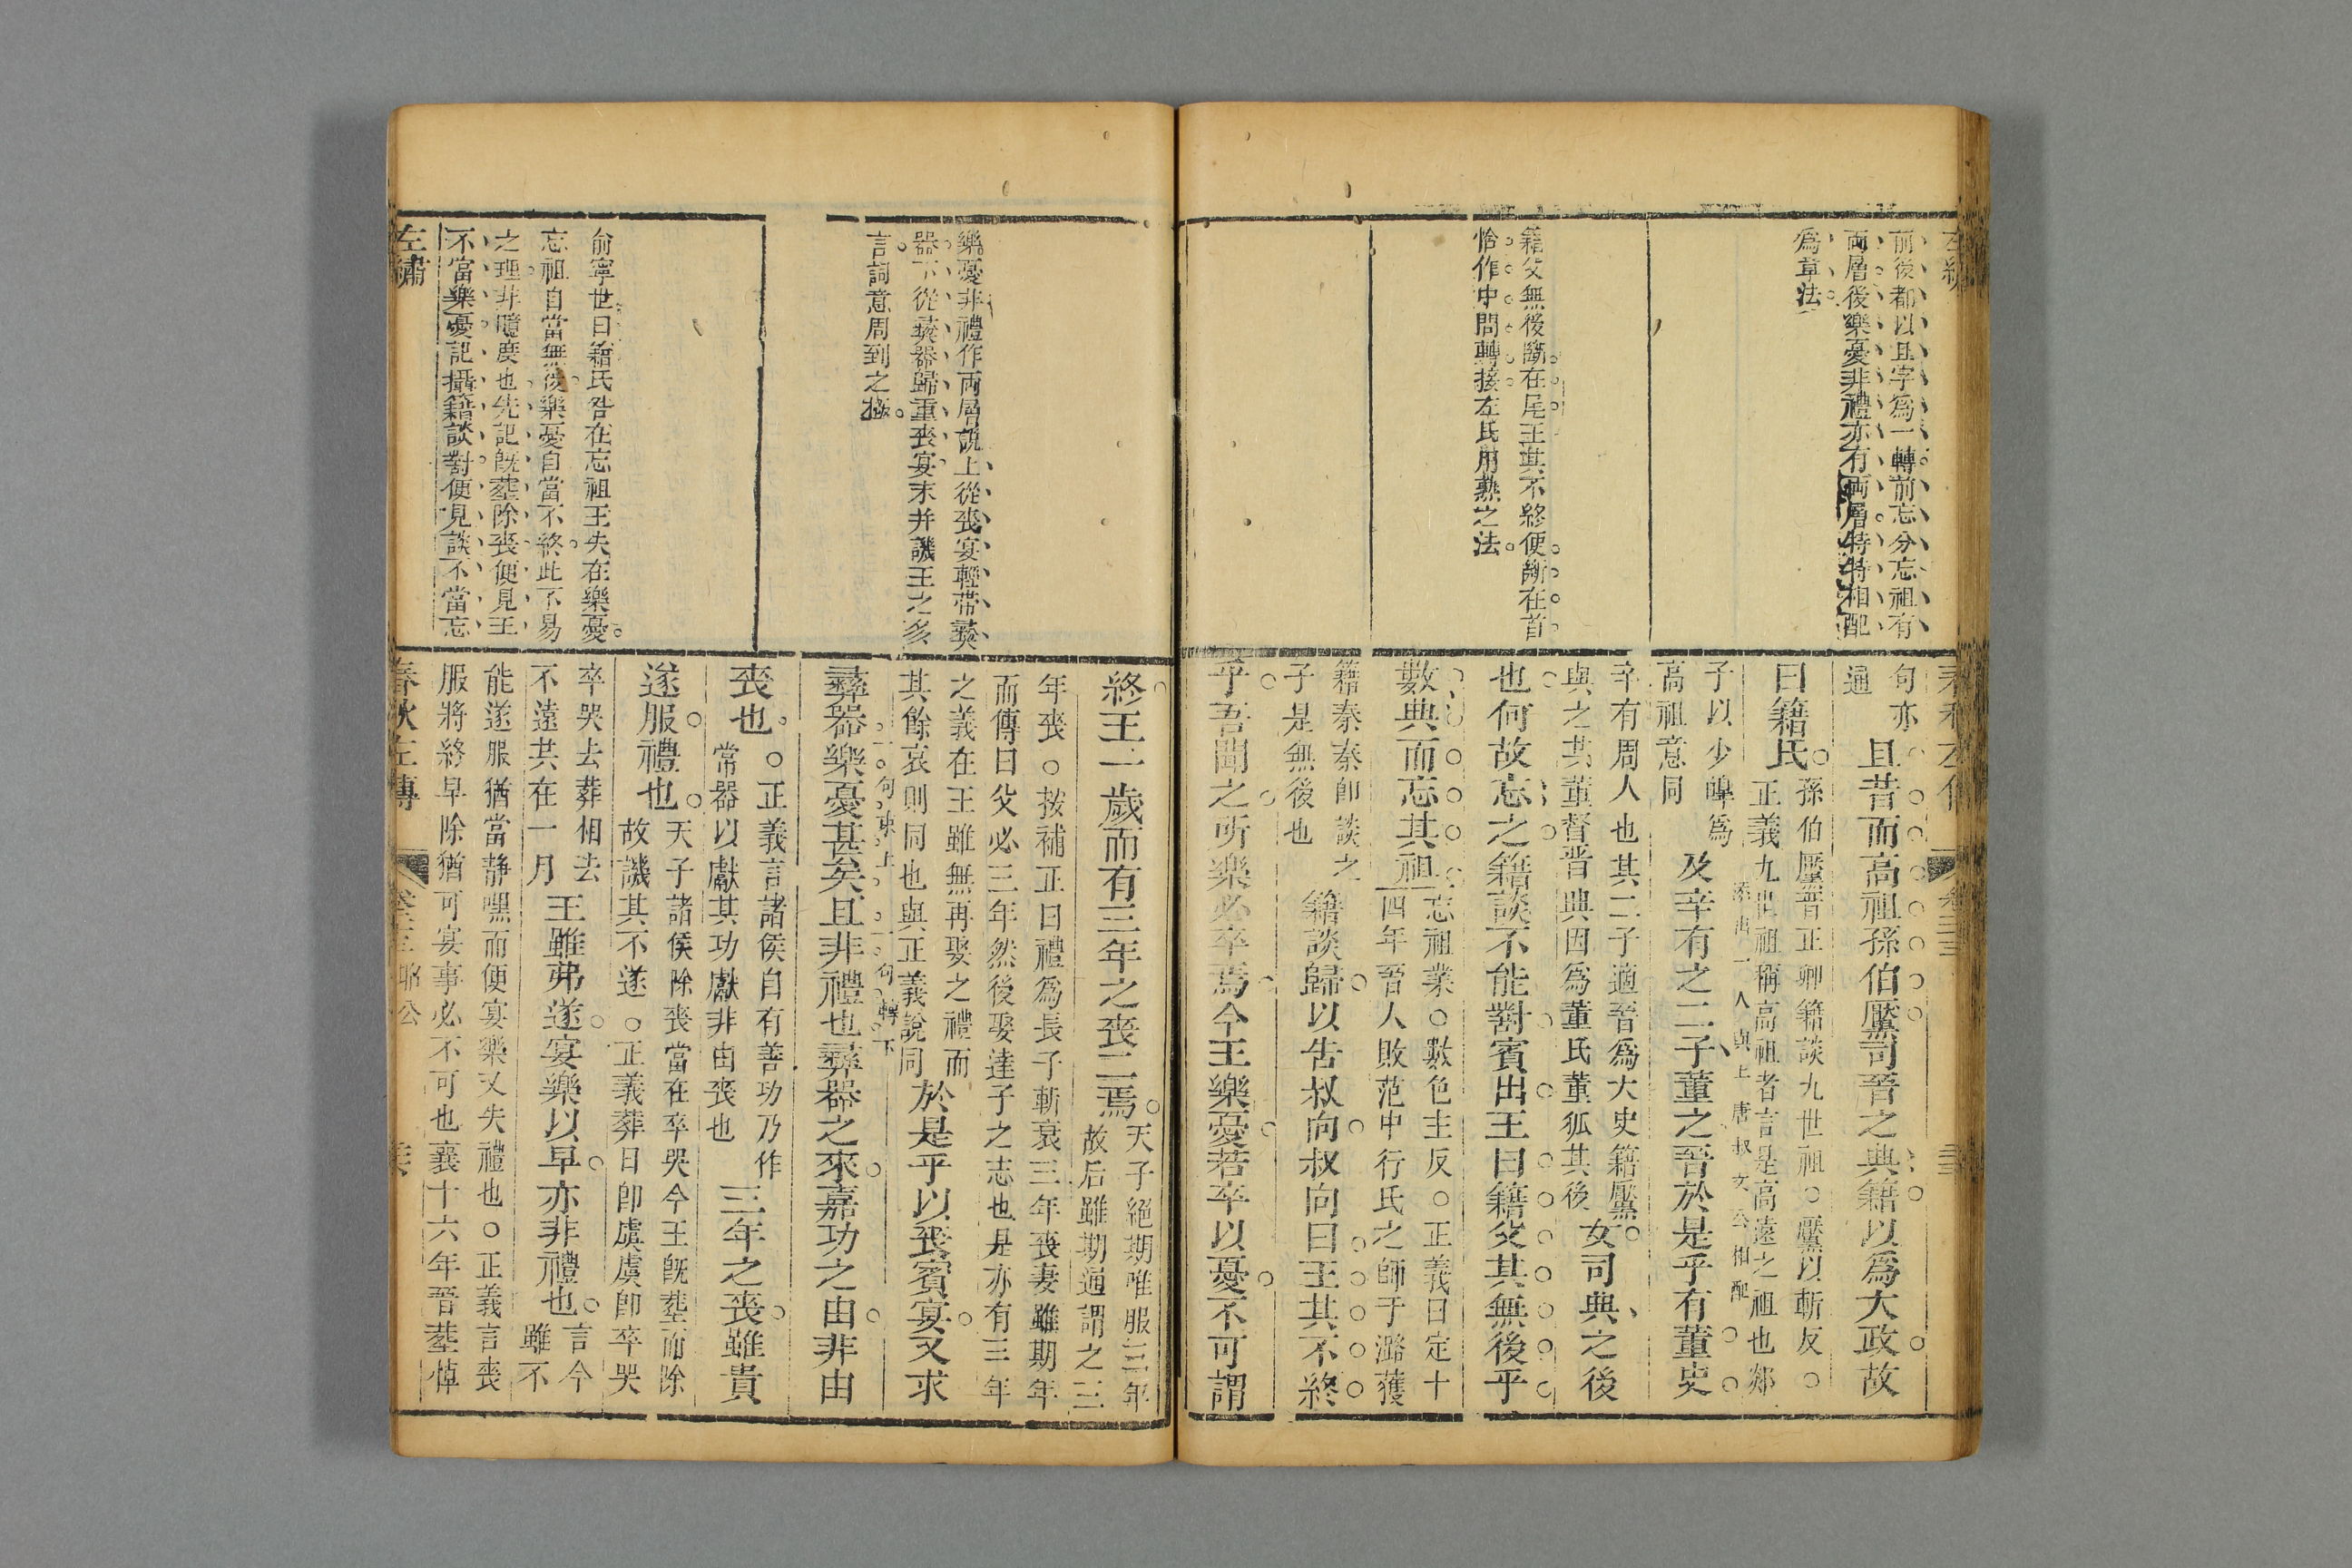 前後都以且字爲一轉前忘分忘祖有
兩層後樂憂非禮亦有兩層特特相配
爲章法
籍父無後斷在尾王其不終便斷在首
恰作中間轉接左氏用熟之法
句亦
通
且昔而高祖孫伯黶司晉之典籍以爲大政故
曰籍氏
孫伯黶晉正卿籍談九世祖○黶以斬反○
正義九世祖稱高祖者言是高遠之祖也郯
子以少皡爲
高祖意同
添出一人與上唐叔文公相配
及辛有之二子董之晉於是乎有董史
辛有周人也其二子適晉爲大史籍黶
與之共董督晉典因爲董氏董狐其後
女司典之後
也何故忘之籍談不能對賓出王曰籍父其無後乎
數典而忘其祖
忘祖業○數色主反○正義曰定十
四年晉人敗范中行氏之師于潞獲
籍秦秦卽談之
子是無後也
籍談歸以告叔向叔向曰王其不終
乎吾聞之所樂必卒焉今王樂憂若卒以憂不可謂
樂憂非禮作兩層說上從喪宴輕帶彝
器下從彝器歸重喪宴末并譏王之多
言詞意周到之極
俞寧世曰籍氏咎在忘祖王失在樂憂
忘祖自當無後樂憂自當不終此不易
之理非臆度也先記旣葬除喪便見王
不當樂憂記攝籍談對便見談不當忘
左繡
終王一歲而有三年之喪二焉
天子絕期唯服三年
故后雖期通謂之三
年喪○按補正曰禮爲長子斬衰三年喪妻雖期年
而傳曰父必三年然後娶達子之志也是亦有三年
之義在王雖無再娶之禮而
其餘哀則同也與正義說同
於是乎以喪賓宴又求
一句束上
一句轉下
彝器樂憂甚矣且非禮也彝器之來嘉功之由非由
喪也
○正義言諸侯自有善功乃作
常器以獻其功獻非由喪也
三年之喪雖貴
遂服禮也
天子諸侯除喪當在卒哭今王旣葬而除
故譏其不遂○正義葬日卽虞虞卽卒哭
卒哭去葬相去
不遠共在一月
王雖弗遂宴樂以早亦非禮也
言今
雖不
能遂服猶當静嘿而便宴樂又失禮也○正義言喪
服將終早除猶可宴事必不可也襄十六年晉葬悼
春秋左傳
昭公